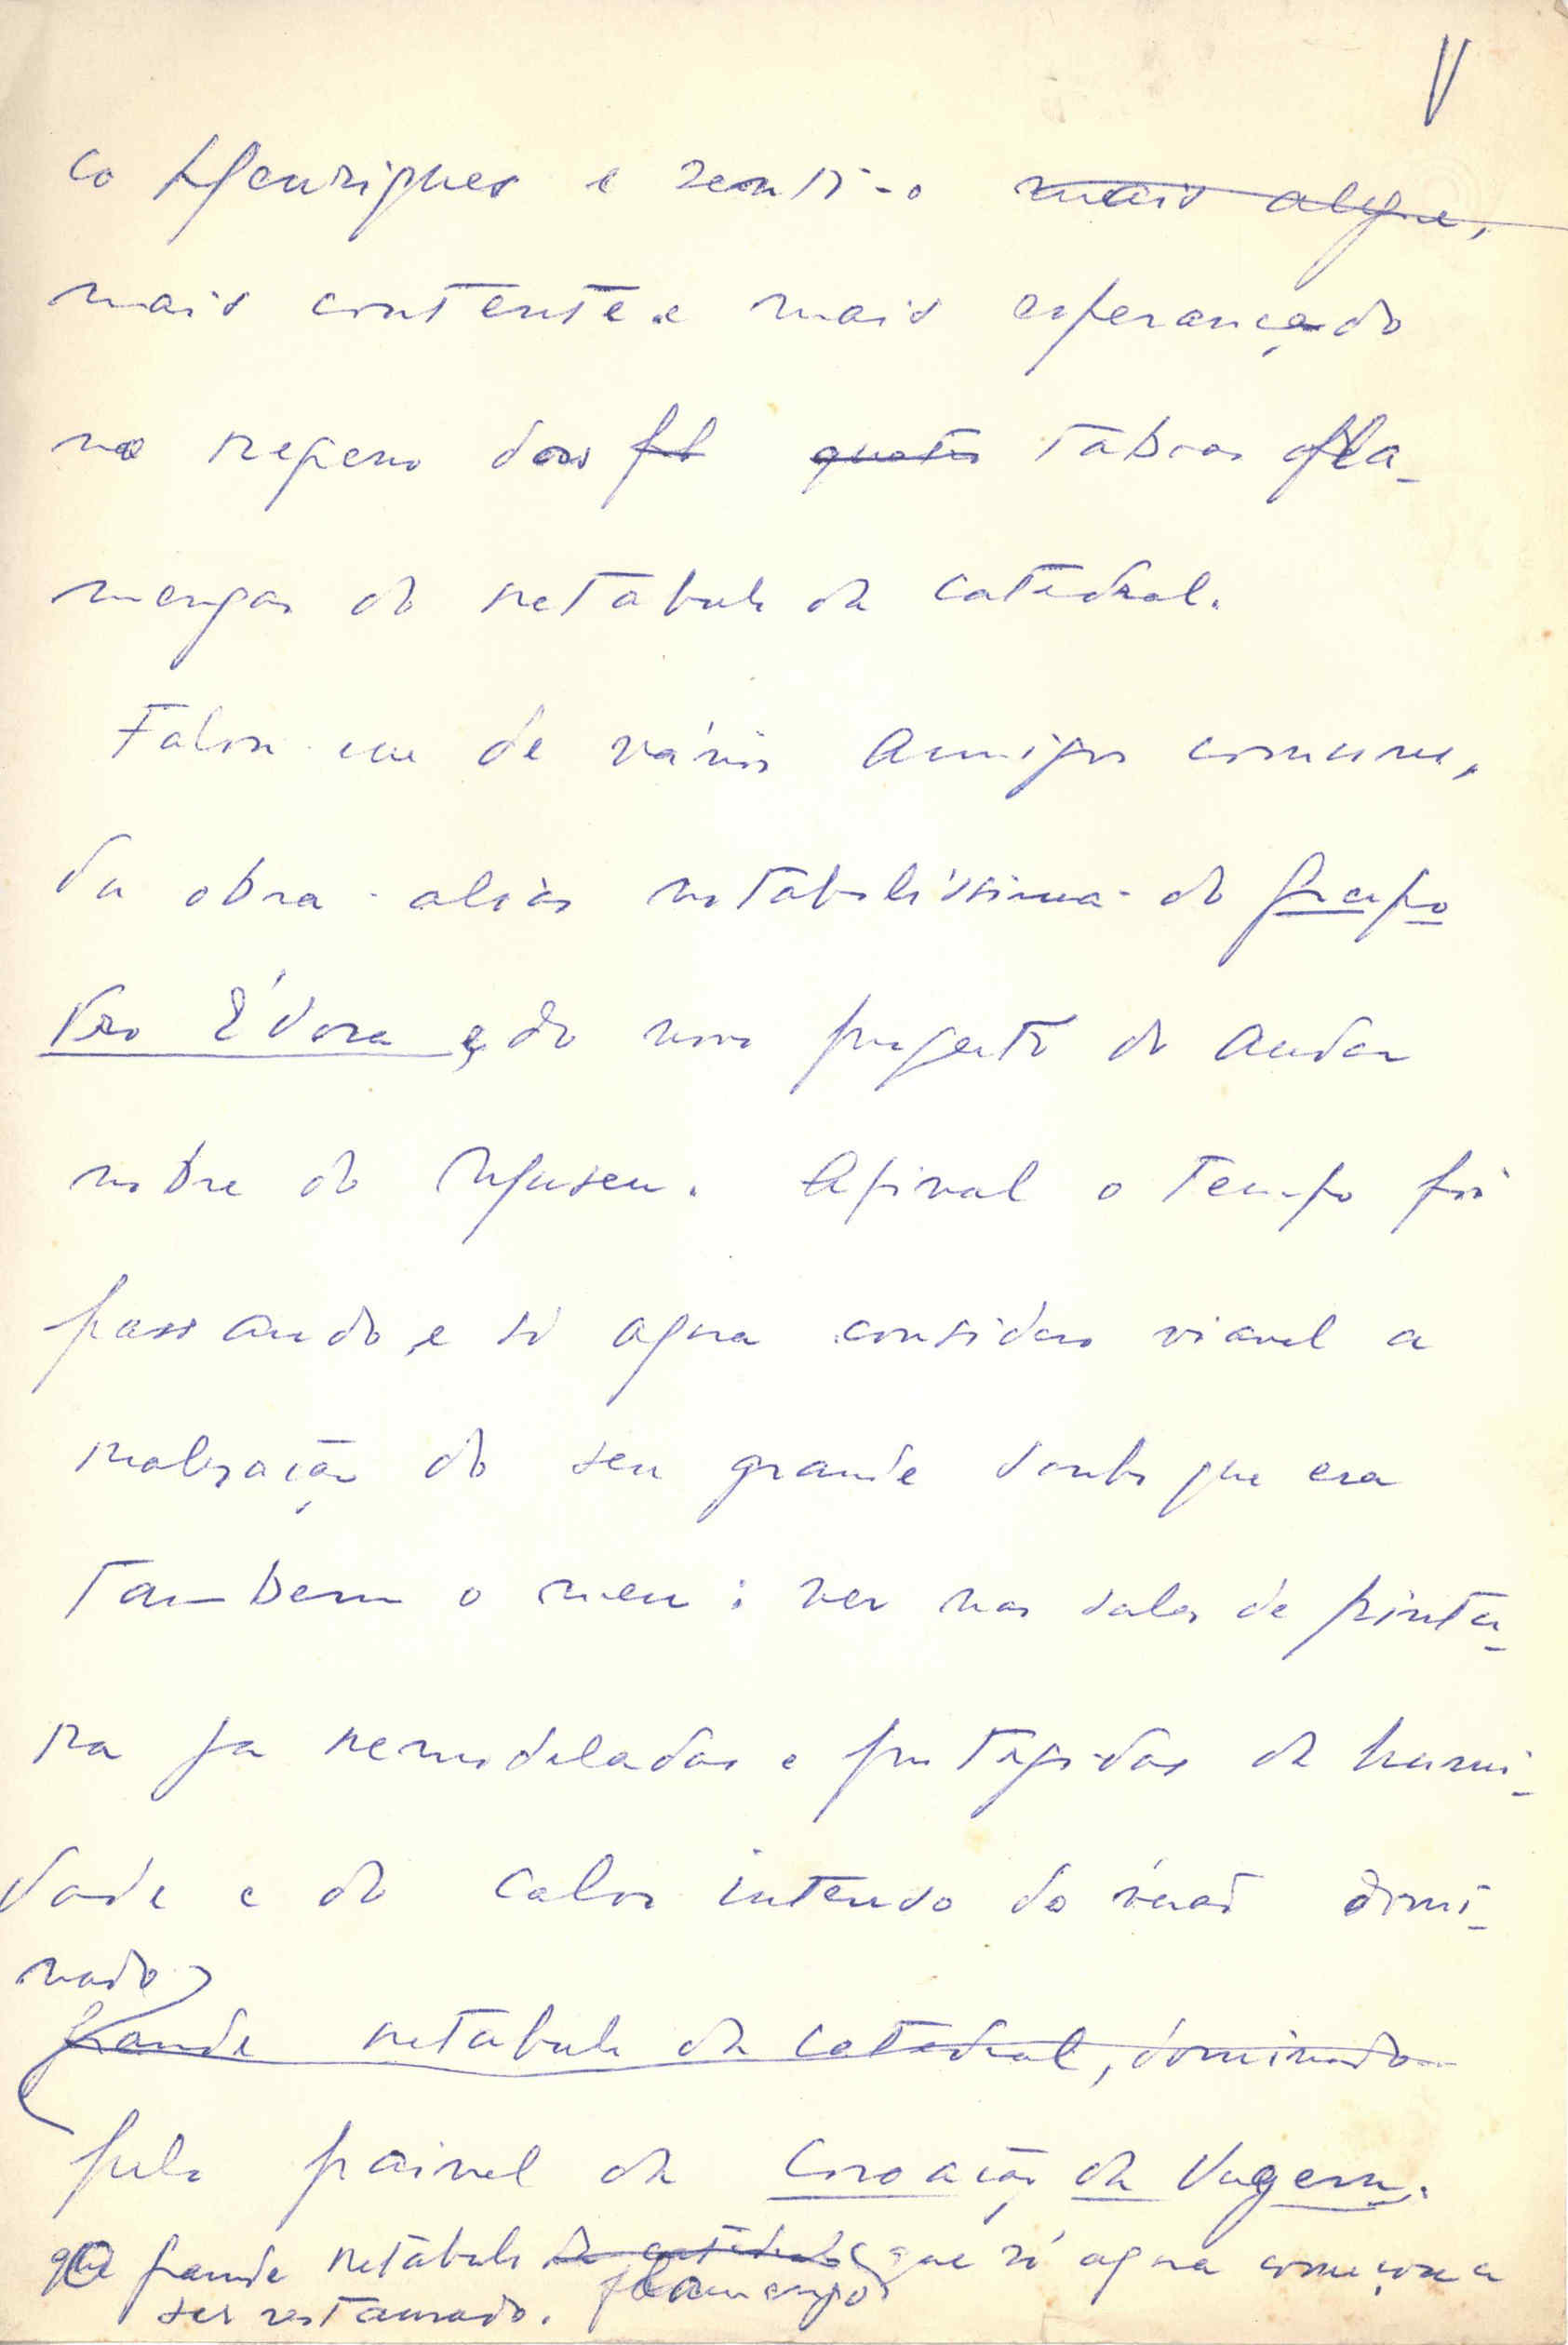 V
co Henriques e senti-o mais alegre,
mais contente e mais esperançado
no regresso das quatro taboas fla-
mengas do retabulo da catedral.
Falou-me de vários amigos comuns,
da obra - aliás notabilíssima - do Grupo
Pro Évora e do novo projecto do andar
nobre do Museu. Afinal o tempo foi
passando, e só agora considero viavel a
realização do seu grande sonho que era
tambem o meu: ver nas salas de pintu-
ra ja remodeladas e protegidas da humi-
dade e do calor intenso do verão domi-
nado
grande retabulo da catedral, dominado
pelo painel da Coroação da Virgem.
o grande retábulo da catedral que só agora começou a
flamengo
ser restaurado.